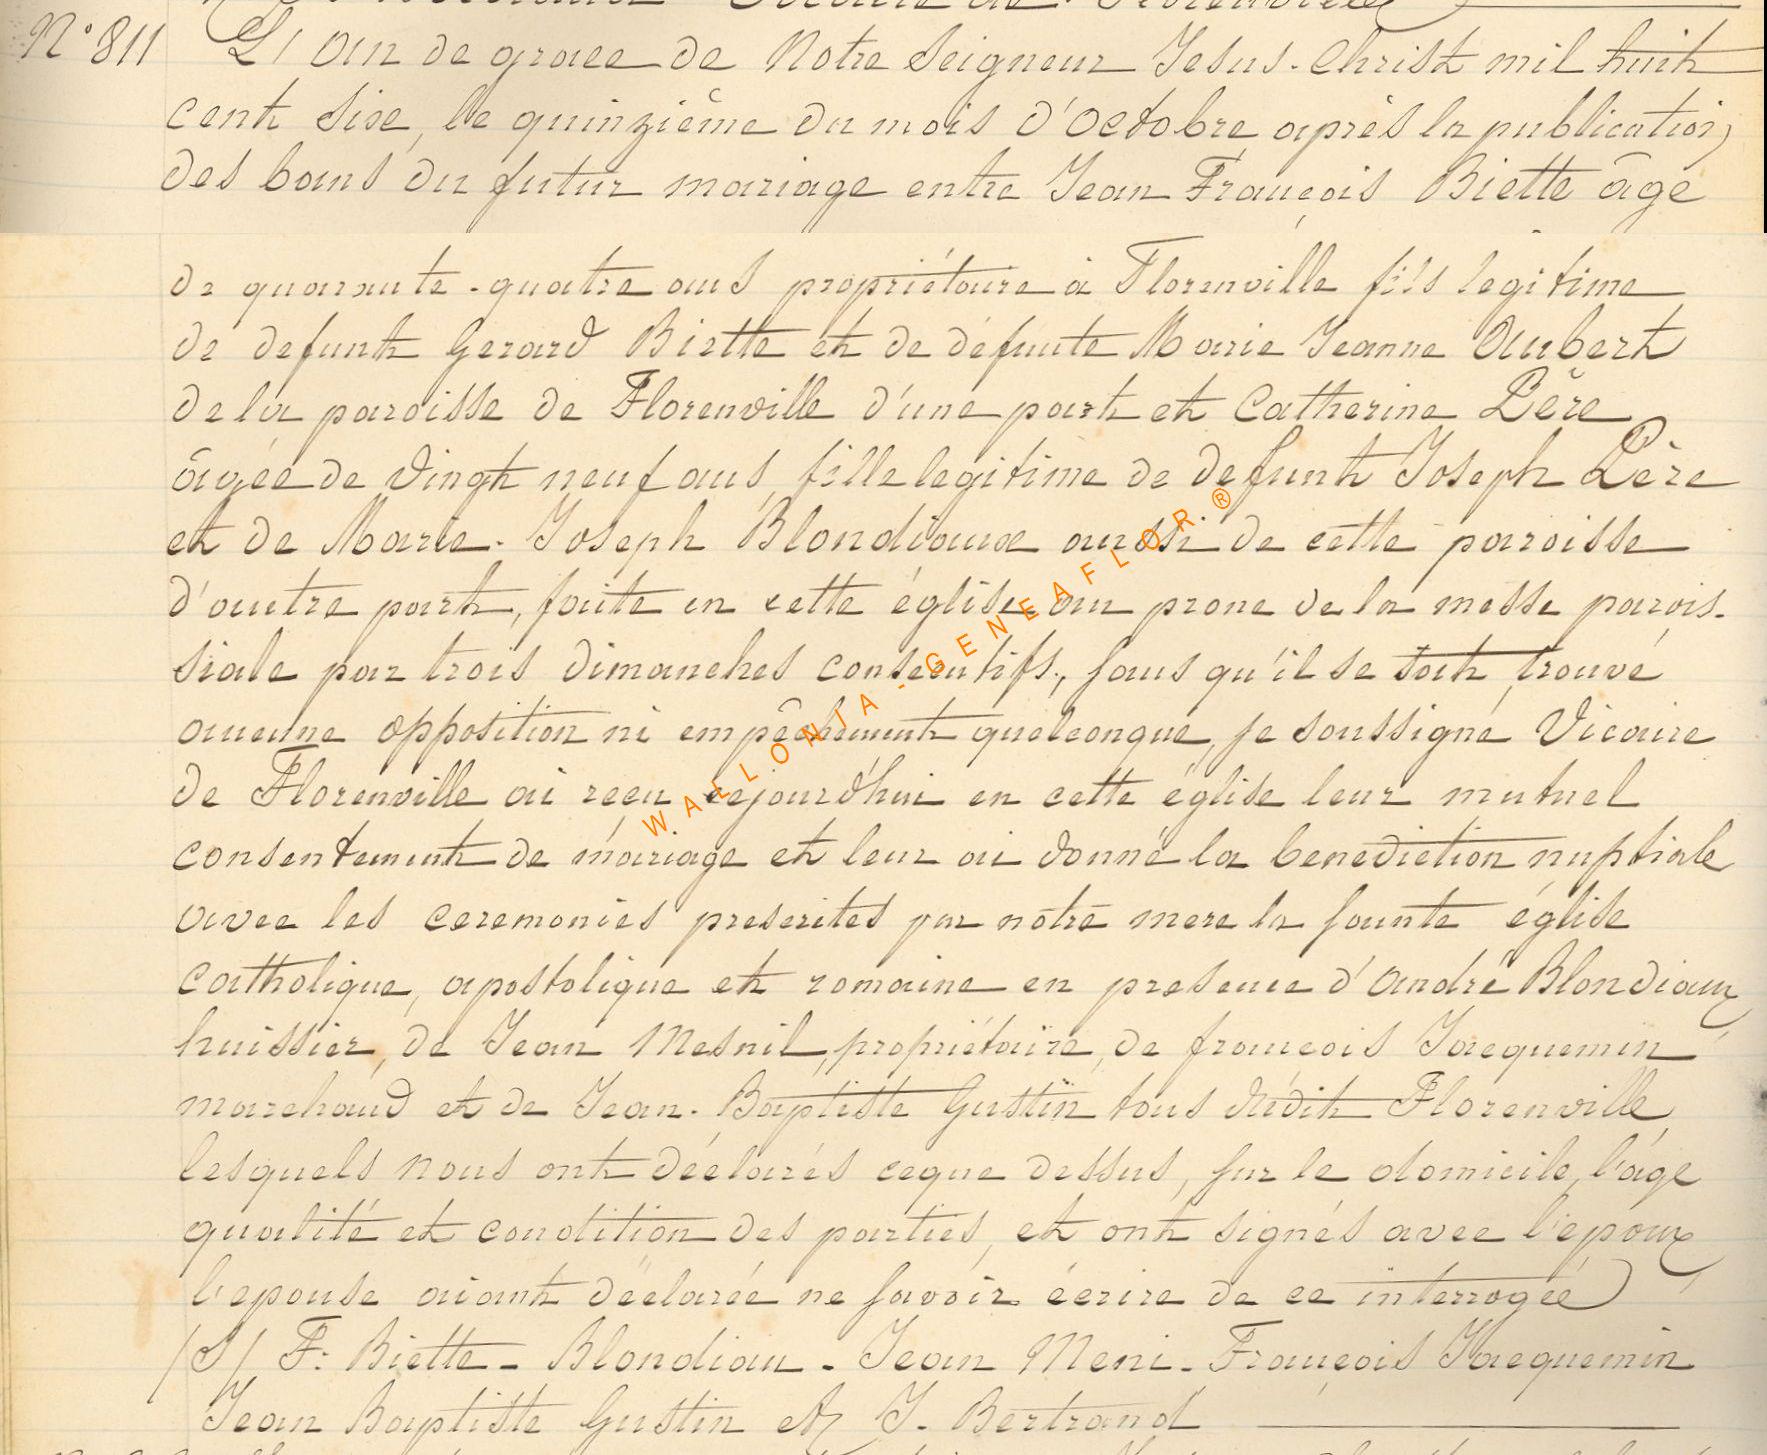 N° 811 L'An de grace de Notre Seigneur Jesus-Christ mil huit
cent Six, le quinzième du mois d'Octobre après la publication
des bans du futur mariage entre Jean François Biette âgé
de quarante-quatre ans propriétaire à Florenville fils legitime
de defunt Gerard Biette et de défunte Marie Jeanne Aubert
de la paroisse de Florenville d'une part et Catherine Lère
âgée de vingt neuf ans, fille legitime de defunt Joseph Lère
et de Marie-Joseph Blondiaux aussi de cette paroisse
d'autre part, faite en cette église au prone de la messe parois-
siale par trois dimanches consecutifs, sans qu'il se soit trouvé
aucune opposition ni empêchement quelconque, je soussigné Vicaire
de Florenville ai reçu cejourd'hui en cette église leur mutuel
consentement de mariage et leur ai donné la benediction nuptiale
avec les ceremonies prescrites par notre mere la sainte église
catholique, apostolique et romaine en presence d'André Blondiaux
huissier, de Jean Mesnil, propriétaire, de françois Jacquemin
marchand et de Jean-Baptiste Gustin tous dudit Florenville,
lesquels nous ont déclarés ceque dessus, sur le domicile, l'âge
qualité et condition des parties, et ont signés avec l'epoux,
l'epouse aiant déclarée ne savoir écrire de ce interrogée
/S/ F: Biette - Blondiau - Jean Meni - François Jacquemin
Jean Baptiste Gustin et J. Bertrand
WALLONIA - GENEAFLOR ®